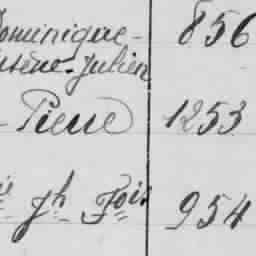 Dominique- 856
Julien
- Pierre 1253
Jh Fois 954